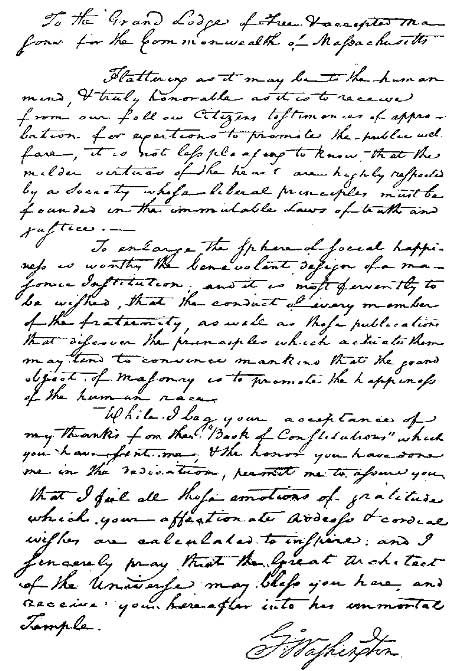 To the Grand Lodge of Free & accepted Ma-
sons for the Commonwealth of Massachusetts
Flattering as it may be to the human
mind, & truly honorable as it is to receive
from our fellow Citizens testimonies of appro-
bation for exertions to promote the public wel-
fare, it is not less pleasing to know, that the
milder virtues of the heart are highly respected
by a Society whose liberal principles must be
founded in the immutable Laws of truth and
justice.
To enlarge the sphere of social happi-
ness is worthy the benevolent design of a ma-
sonic Institution; and it is most fervently to
be wished, that the conduct of every member
of the fraternity, as well as those publications
that discover the principles which actuate them
may tend to convince mankind that the grand
object of Masonry is to promote the happiness
of the human race.
While I beg your acceptance of
my thanks for the "Book of Constitutions" which
you have sent me, & the honor you have done
me in the dedication, permit me to assure you
that I feel all those emotions of gratitude
which your affectionate Address & cordial
wishes are calculated to inspire: and I
sincerely pray that the Great Architect
of the Universe may bless you here, and
receive you hereafter into his immortal
Temple.
G:Washington